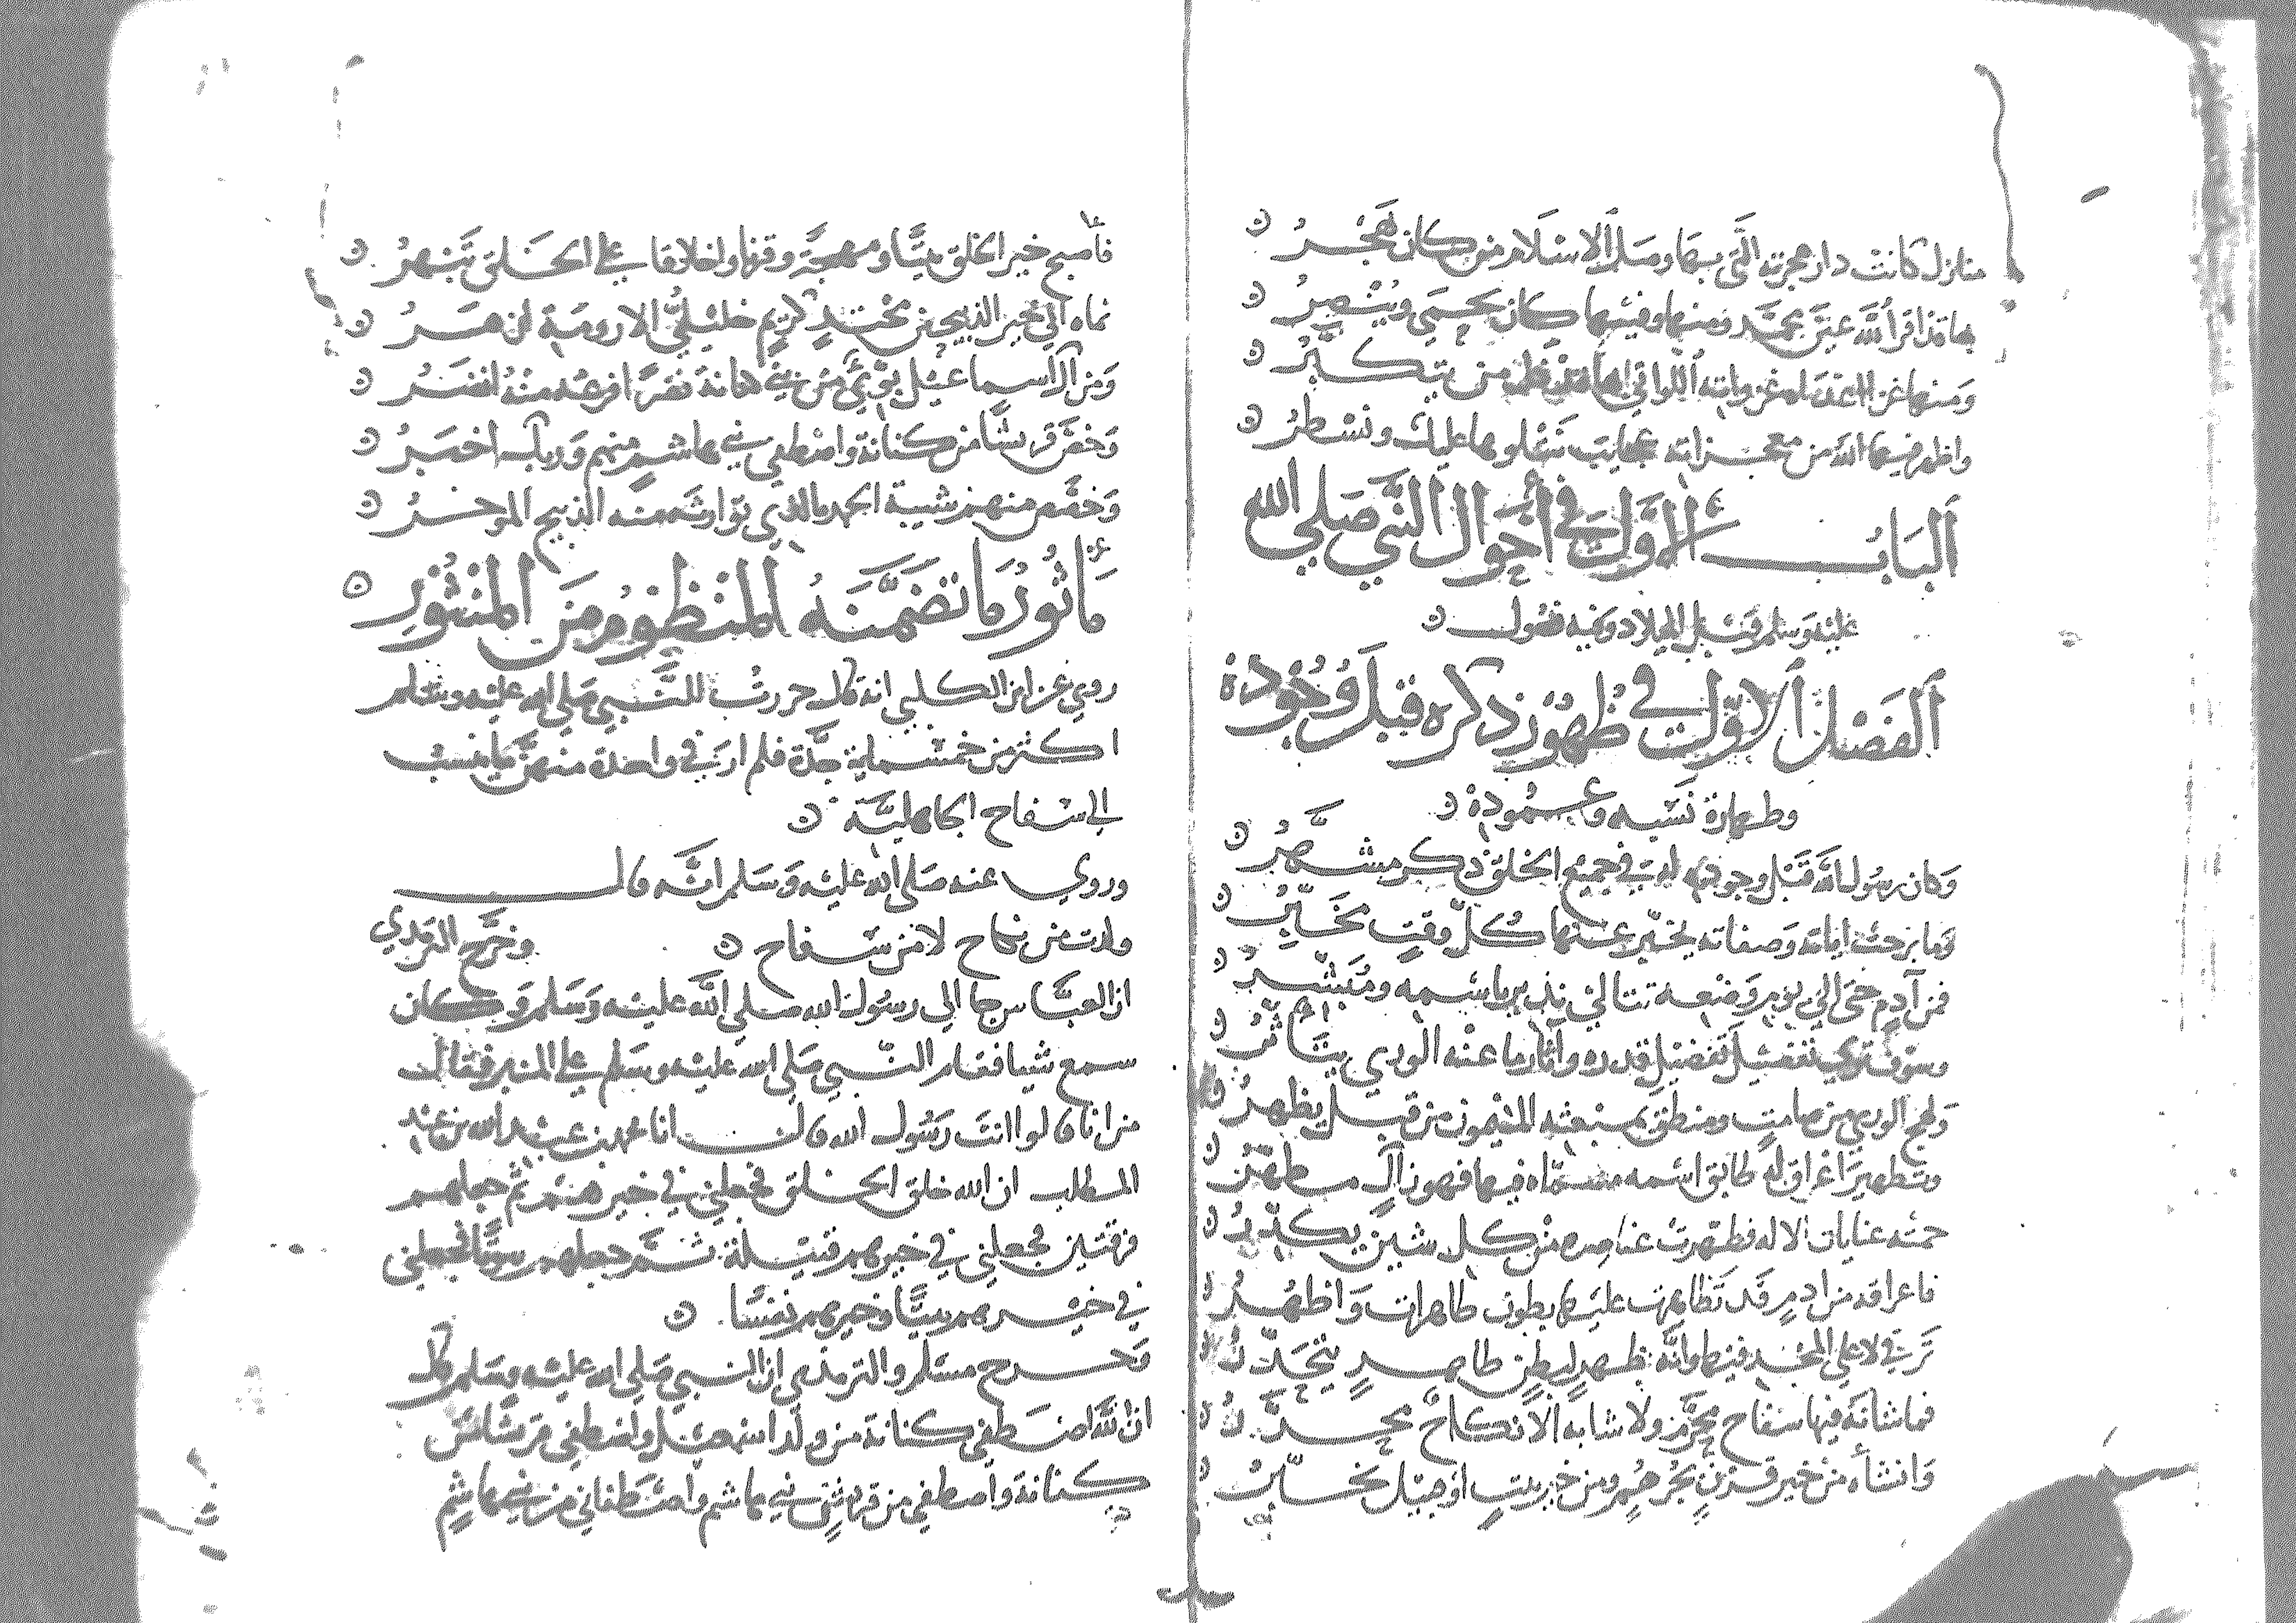 منازل كانت دار هجرته التي بها وصل الإسلام من كان هجر
بها قد أقر الله عين محمد ومنها وفيها كان يحمى وينصر
ومنها غزا الأعداء غزواته اللواتي بها من يتكبر
واظهر فيها الله من معجزاته عجايب نتلوها عليك ونسطر
الباب الأول في أحوال النبي صلى الله
عليه وسلم قبل الميلاد وفيه فصول
الفصل الأول في ظهور ذكره قبل وجوده
وطهارة نسبه وعموده
وكان رسول الله قبل وجوده له في جميع الخلق ذكر مشهر
وما برحت اياته وصفاته يخبر عنها كل وقت مخبر
فمن آدم حتى إلى يوم وضعه تتالى نذير باسمه ومبشر
وسوف ترى تفصيل تفضيل قدره وآثار ما عنه الورى يتأثر
ولهج الورى من صامت ومنطق بمبعثه الميمون من قبل يظهر
وتطهير اعراق له طابق اسمه مسماه فيها فهو من آل مطهر
حمته عنايات الاله فطهرت عناصره من كل شين يكدر
فاعراقه من ادم قد تظاهرت عليها بطون طاهرات واظهر
ترقى لاعلى المجد فيها وانه ظهر لبطن طاهر يتحدر
فما شانه فيها سفاح محرم ولا شابه الا نكاح محرر
وانشاه من خير قرن بجرهم ومن خير بيت او جيل يخير
فاصبح خير الخلق بيتا ومهجة وقرنا واخلاقا على الخلق تبهر
نماه إلى خير الذبيحين محتد كريم خليلي الارومة ازهر
ومن آل اسماعيل بوئ من بني كنانة نفرا فرعه منه انضر
وخص قريشا من كنانة واصطفى بني هاشم منهم وربك اخبر
وخصص منهم شيبة الحمد بالذي توارثه منه الذبيح الموخر
مأثور ما تضمنه المنظوم من المنثور
روي عن ابن الكلبي انه قال حررت للنبي صلى الله عليه وسلم
اكثر من خمسماية جدة فلم ار في واحدة منهن ما ينسب
الى سفاح الجاهلية
وروي عنه صلى الله عليه وسلم انه قال
ولدت من نكاح لا من سفاح وخرج الترمذي
ان العباس جا الى رسول الله صلى الله عليه وسلم وكان
سمع شيا فقام النبي صلى الله عليه وسلم على المنبر فقال
من انا قالوا انت رسول الله قال انا محمد بن عبد الله بن عبد
المطلب ان الله خلق الخلق فجعلني في خيرهم ثم جعلهم
فرقتين فجعلني في خيرهم قبيلة ثم جعلهم بيوتا فجعلني
في خيرهم بيتا وخيرهم نفسا
وخرج مسلم والترمذي ان النبي صلى الله عليه وسلم قال
ان الله اصطفى كنانة من ولد اسمعيل واصطفى قريشا من
كنانة واصطفى من قريش بني هاشم واصطفاني من بني هاشم